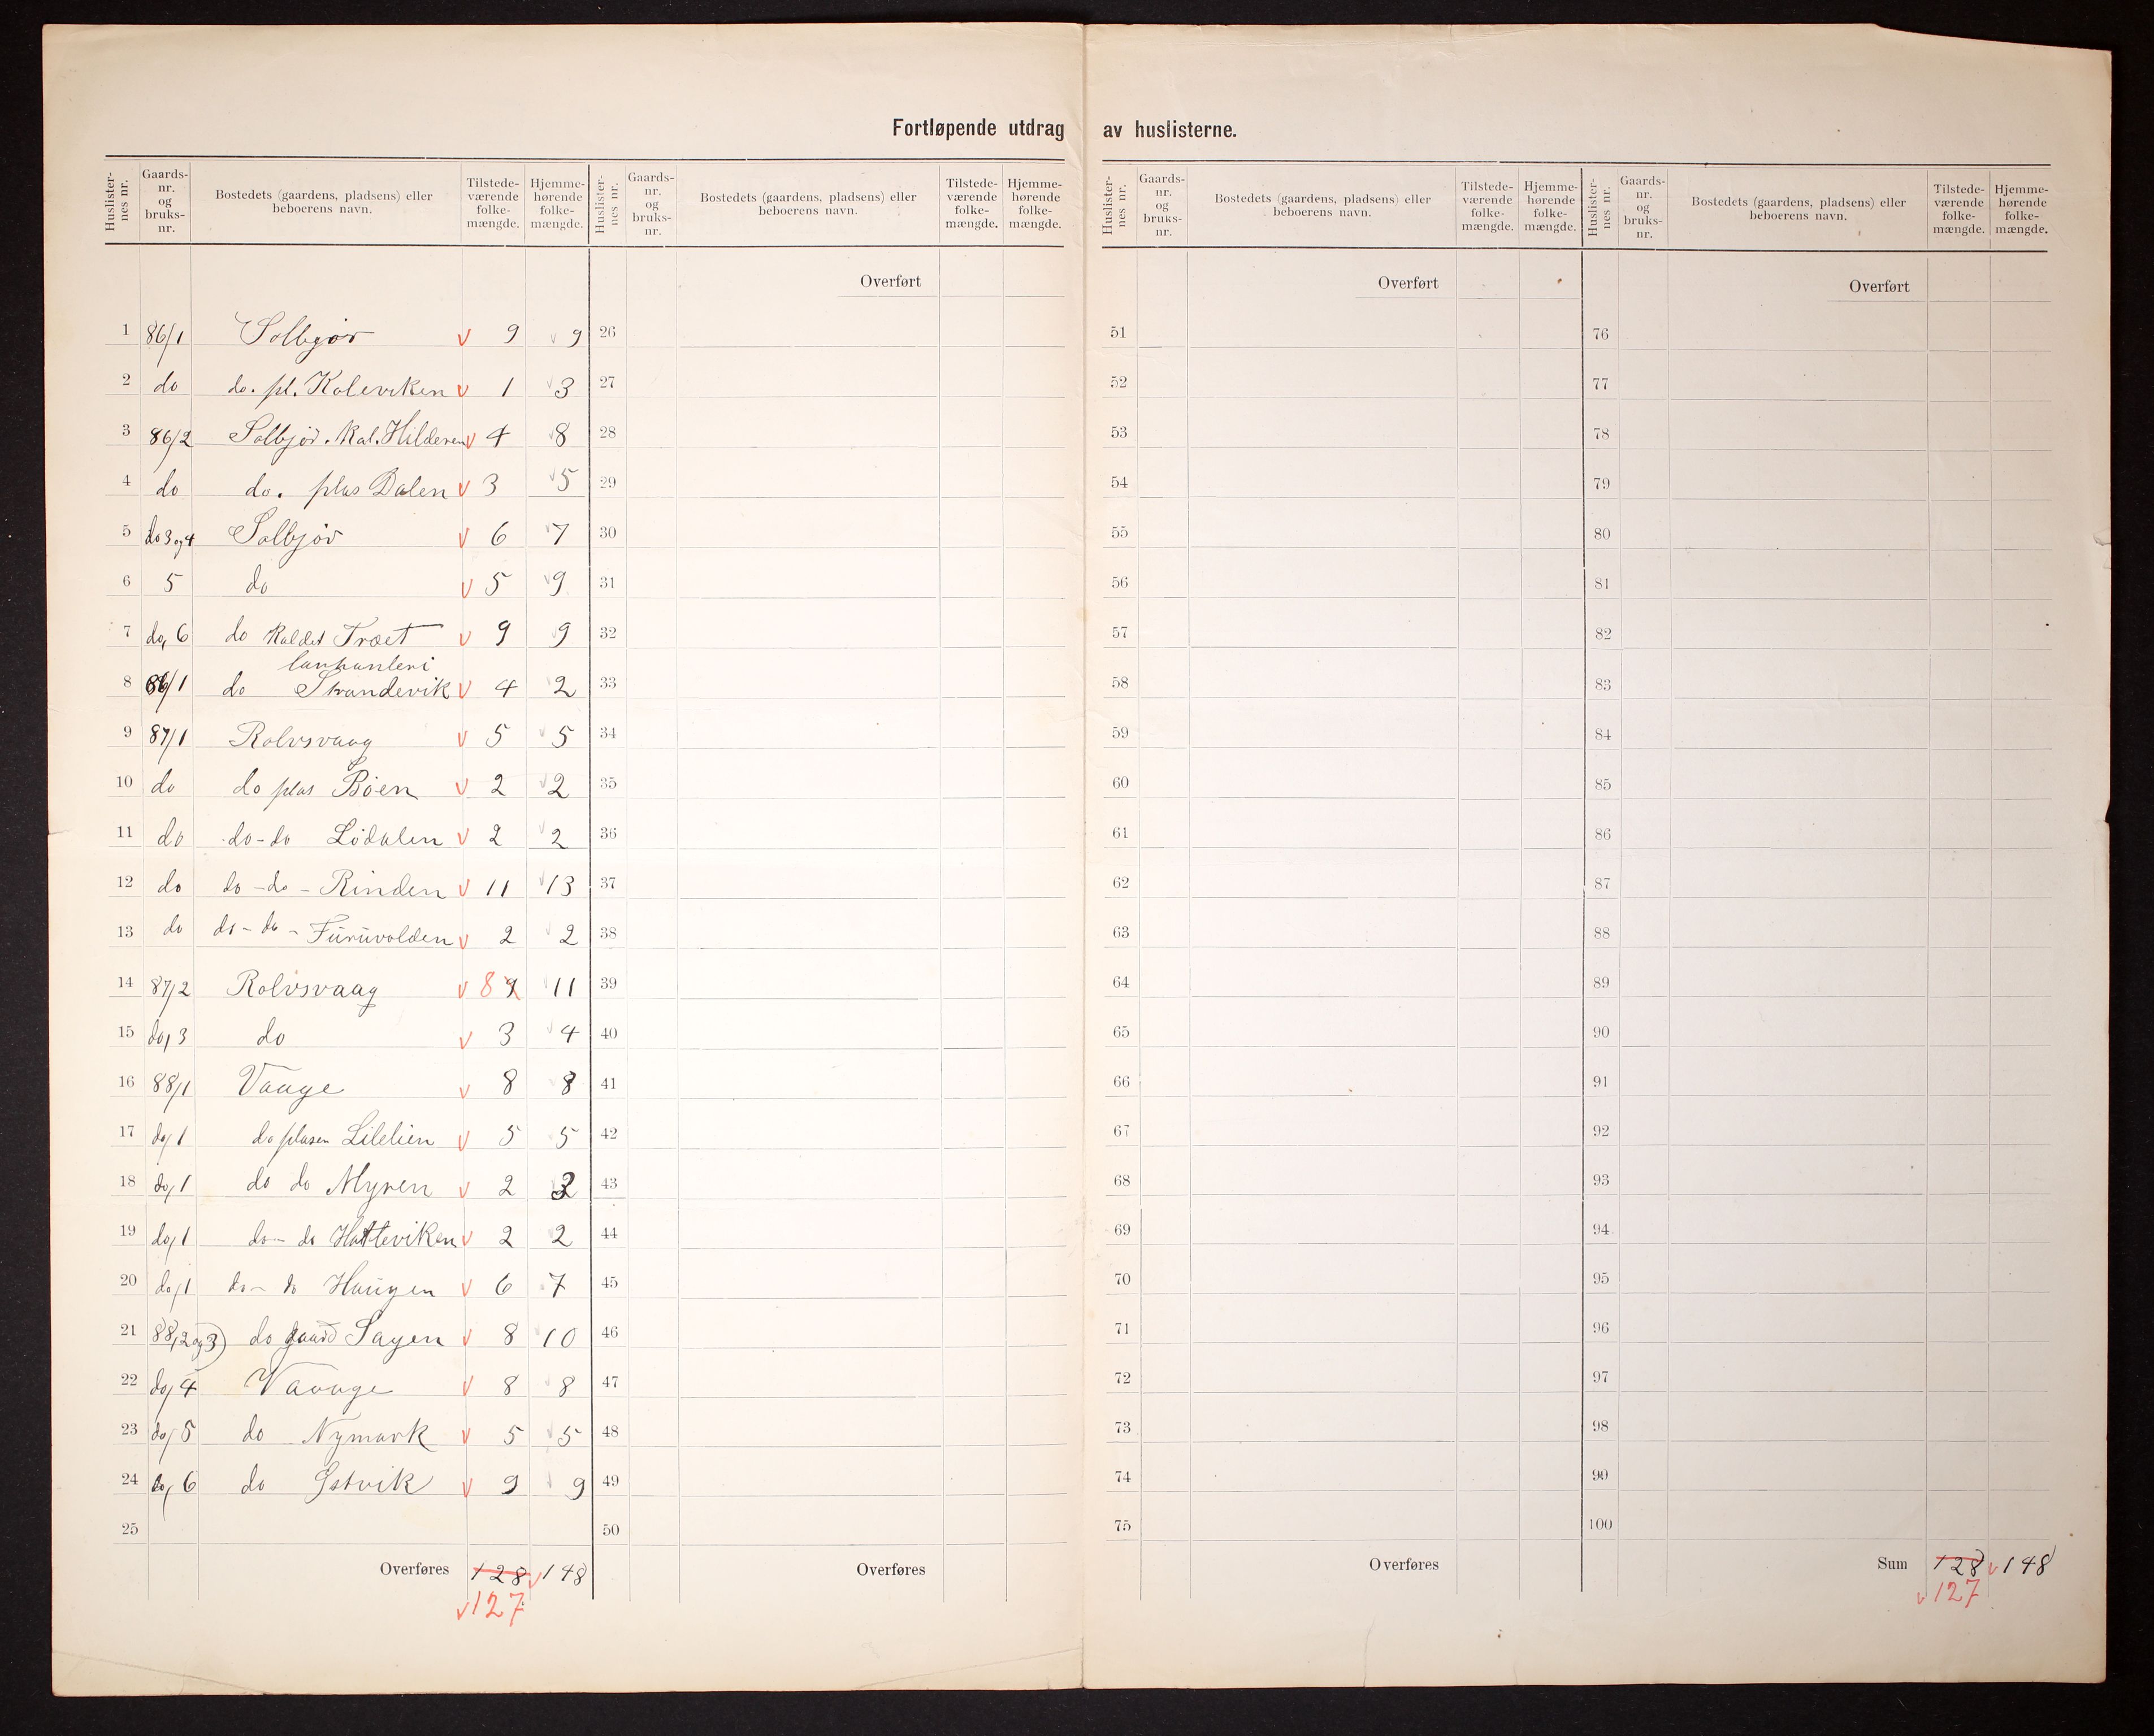 Fortløpende utdrag av huslisterne.
Huslisternes nr. Gaards-nr. og bruks-nr. Bostedets (gaardens, pladsens) eller beboerens navn. Tilstede-værende folke-mængde. Hjemme-hørende folke-mængde.
1 86/1 Solbjør v 9 v 9
2 do do. pl. Koleviken v 1 v 3
3 86/2 Solbjør. Kal. Hilderen v 4 v 8
4 do do. plas Dalen v 3 v 5
5 do 3 og 4 Solbjør v 6 v 7
6 5 do v 5 v 9
7 do, 6 do Kaldet Træet v 9 v 9
lanhanleri
8 86/1 do Strandevik v 4 v 2
9 87/1 Rolvsvaag v 5 v 5
10 do do plas Bøen v 2 v 2
11 do do - do Lødalen v 2 v 2
12 do do - do - Rinden v 11 v 13
13 do do - do - Furuvolden v 2 v 2
14 87/2 Rolvsvaag v 8 9 v 11
15 do, 3 do v 3 v 4
16 88/1 Vaage v 8 v 8
17 do, 1 do plasen Lilelien v 5 v 5
18 do, 1 do do Myren v 2 3
19 do, 1 do - do Hatteviken v 2 v 2
20 do, 1 do - do Haugen v 6 v 7
21 88, 2 og 3) do gaard Sagen v 8 v 10
22 do, 4 Vaage v 8 v 8
23 do, 5 do Nymark v 5 v 5
24 do, 6 do Østvik v 9 v 9
25
Overføres 128 v 148
v 127
Huslisternes nr. Gaards-nr. og bruks-nr. Bostedets (gaardens, pladsens) eller beboerens navn. Tilstede-værende folke-mængde. Hjemme-hørende folke-mængde.
Overført
26
27
28
29
30
31
32
33
34
35
36
37
38
39
40
41
42
43
44
45
46
47
48
49
50
Overføres
Huslisternes nr. Gaards-nr. og bruks-nr. Bostedets (gaardens, pladsens) eller beboerens navn. Tilstede-værende folke-mængde. Hjemme-hørende folke-mængde.
Overført
51
52
53
54
55
56
57
58
59
60
61
62
63
64
65
66
67
68
69
70
71
72
73
74
75
Overføres
Huslisternes nr. Gaards-nr. og bruks-nr. Bostedets (gaardens, pladsens) eller beboerens navn. Tilstede-værende folke-mængde. Hjemme-hørende folke-mængde.
Overført
76
77
78
79
80
81
82
83
84
85
86
87
88
89
90
91
92
93
94
95
96
97
98
99
100
Sum 128 v 148
v 127